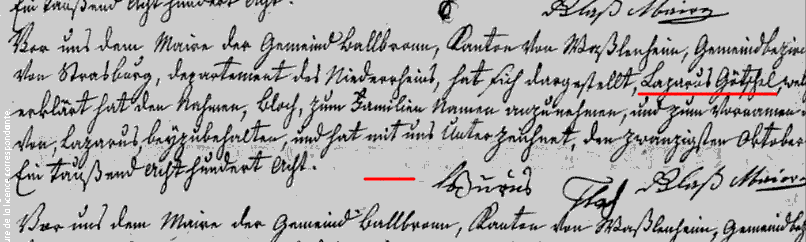 Ein taußend Acht hundert Acht. Blaß Maire
Vor uns dem Maire der Gemeind Ballbronn, Kanton von Waßlenheim, Gemeindbezirk
von Strasburg, departement des Niederrheins, hat sich dargestellt, Lazarus Götschel, wel
erklärt hat den Nahmen, Bloch, zum Familien Namen anzunehmen, und zum Vornamen
von, Lazarus, beyzubehalten, und hat mit uns Unterzeichnet, den zwanzigsten Oktober
Ein taußend Acht hundert Acht.
Blaß Maire
Vor uns dem Maire der Gemeind Ballbronn, Kanton von Waßlenheim, Gemeindbez
ure de la licence correspondante